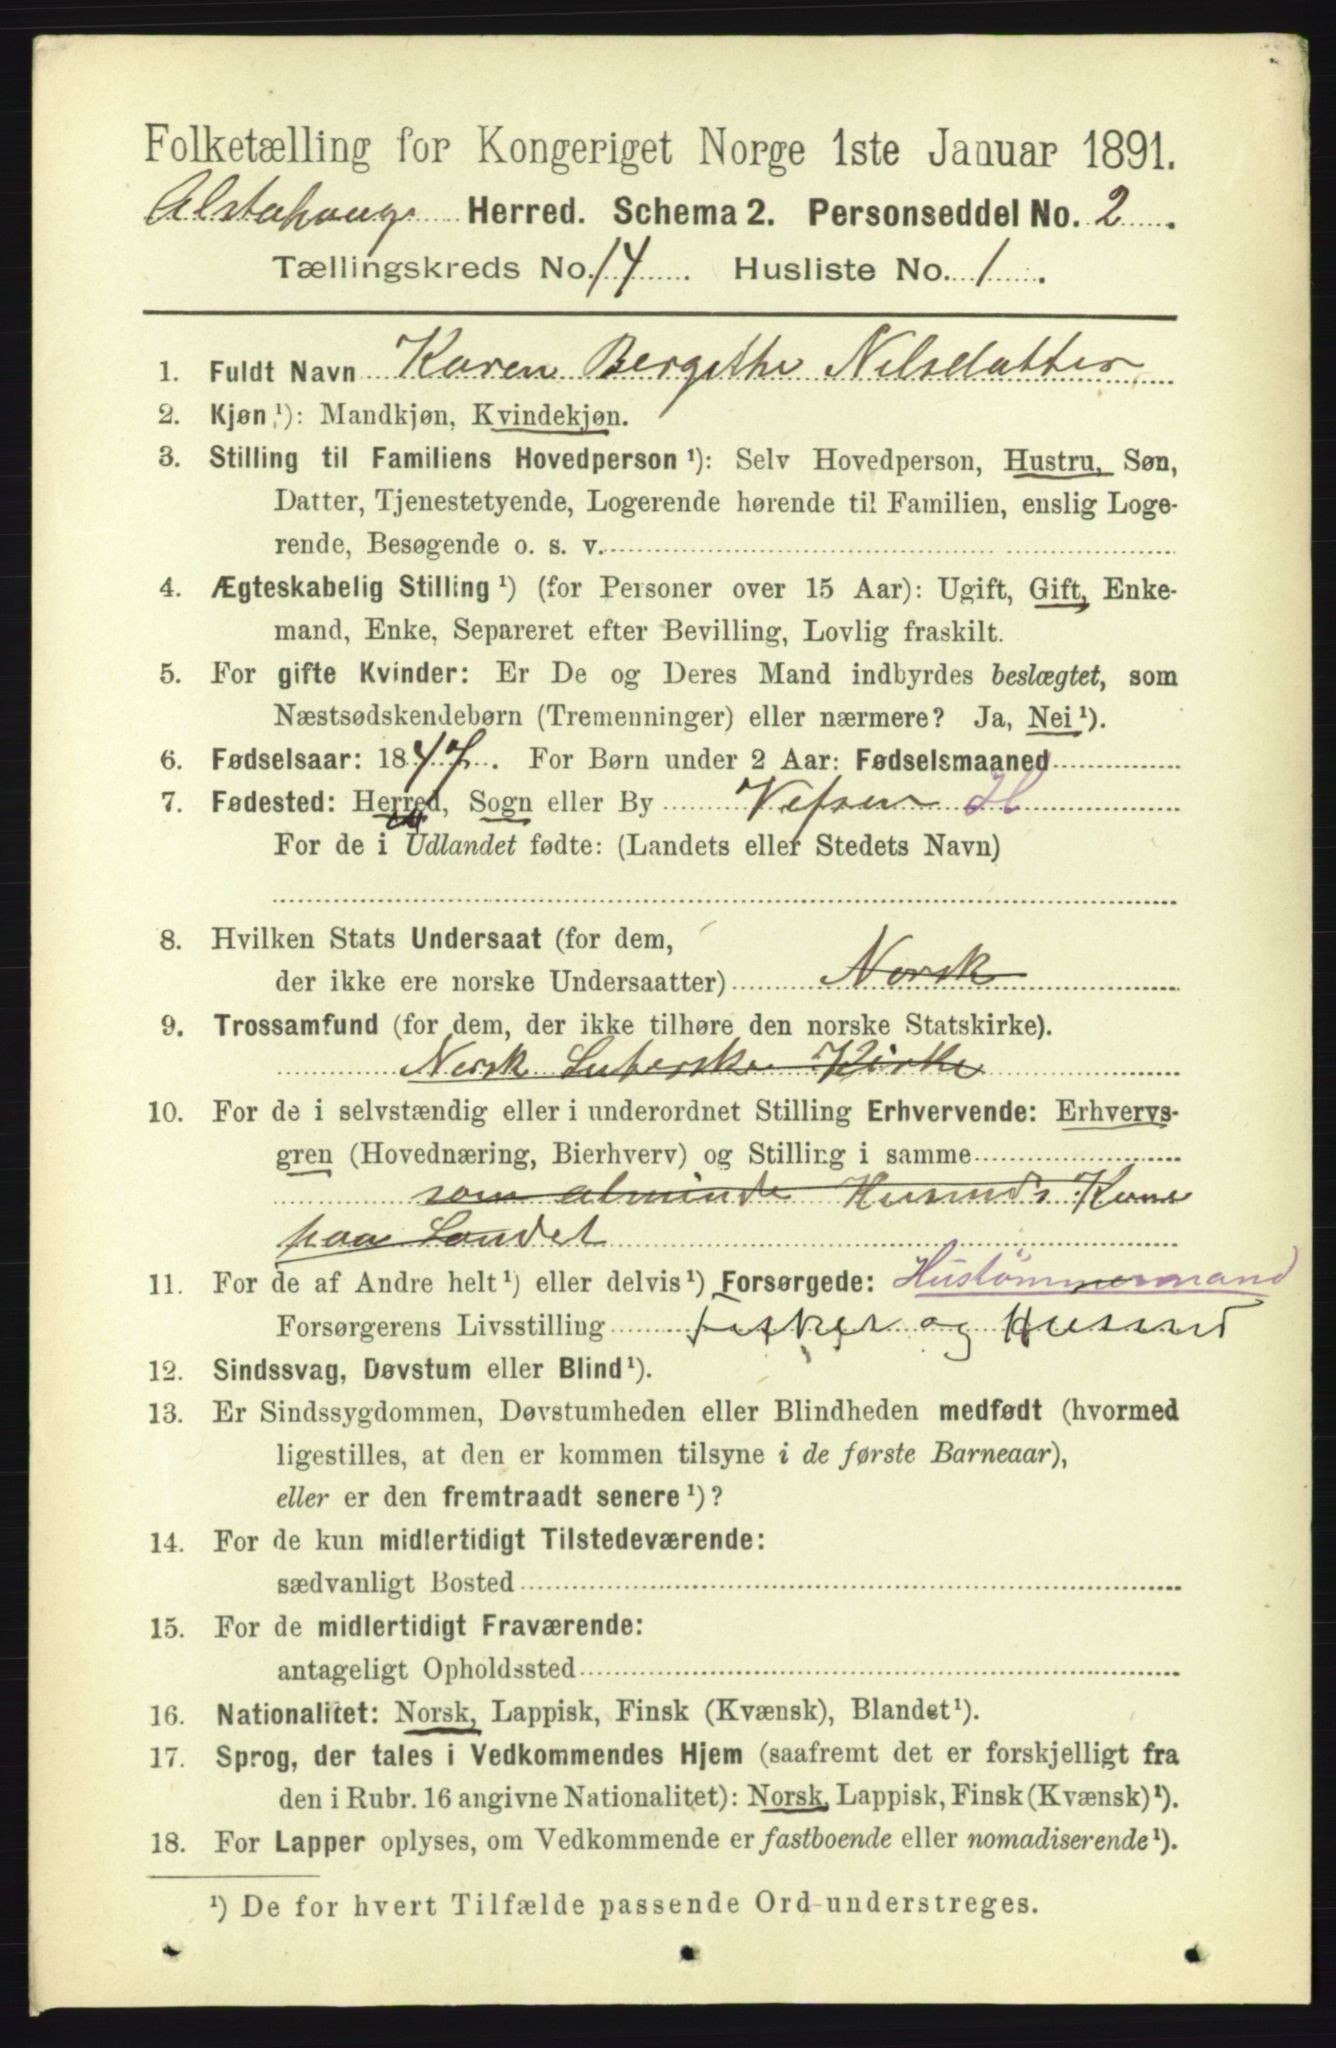 Folketælling for Kongeriget Norge 1ste Januar 1891.
Alstahaug Herred. Schema 2. Personseddel No. 2.
Tællingskreds No. 14. Husliste No. 1.
1. Fuldt Navn Karen Bergithe Nilsdatter
2. Kjøn¹): Mandkjøn, Kvindekjøn.
3. Stilling til Familiens Hovedperson¹): Selv Hovedperson, Hustru, Søn,
Datter, Tjenestetyende, Logerende hørende til Familien, enslig Loge-
rende, Besøgende o. s. v.
4. Ægteskabelig Stilling¹) (for Personer over 15 Aar): Ugift, Gift, Enke-
mand, Enke, Separeret efter Bevilling, Lovlig fraskilt.
5. For gifte Kvinder: Er De og Deres Mand indbyrdes beslægtet, som
Næstsødskendebørn (Tremenninger) eller nærmere? Ja, Nei¹).
6. Fødselsaar: 1847. For Børn under 2 Aar: Fødselsmaaned
7. Fødested: Herred, Sogn eller By Vefsen H
For de i Udlandet fødte: (Landets eller Stedets Navn)
8. Hvilken Stats Undersaat (for dem,
der ikke ere norske Undersaatter) Norsk
9. Trossamfund (for dem, der ikke tilhøre den norske Statskirke).
Norsk Luterske Kirke
10. For de i selvstændig eller i underordnet Stilling Erhvervende: Erhvervs-
gren (Hovednæring, Bierhverv) og Stilling i samme
som alminde Husmds Kone
paa Landet
11. For de af Andre helt¹) eller delvis¹) Forsørgede: Hustømmermand
Forsørgerens Livsstilling Fisker og Husmd
12. Sindssvag, Døvstum eller Blind¹).
13. Er Sindssygdommen, Døvstumheden eller Blindheden medfødt (hvormed
ligestilles, at den er kommen tilsyne i de første Barneaar),
eller er den fremtraadt senere¹)?
14. For de kun midlertidigt Tilstedeværende:
sædvanligt Bosted
15. For de midlertidigt Fraværende:
antageligt Opholdssted
16. Nationalitet: Norsk, Lappisk, Finsk (Kvænsk), Blandet¹).
17. Sprog, der tales i Vedkommendes Hjem (saafremt det er forskjelligt fra
den i Rubr. 16 angivne Nationalitet): Norsk, Lappisk, Finsk (Kvænsk)¹).
18. For Lapper oplyses, om Vedkommende er fastboende eller nomadiserende¹).
¹) De for hvert Tilfælde passende Ord understreges.